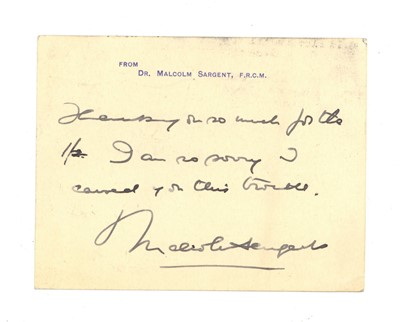 FROM
DR. MALCOLM SARGENT, F.R.C.M.
Thank you so much for the
1/2. I am so sorry I
caused you this trouble.
Malcolm Sargent